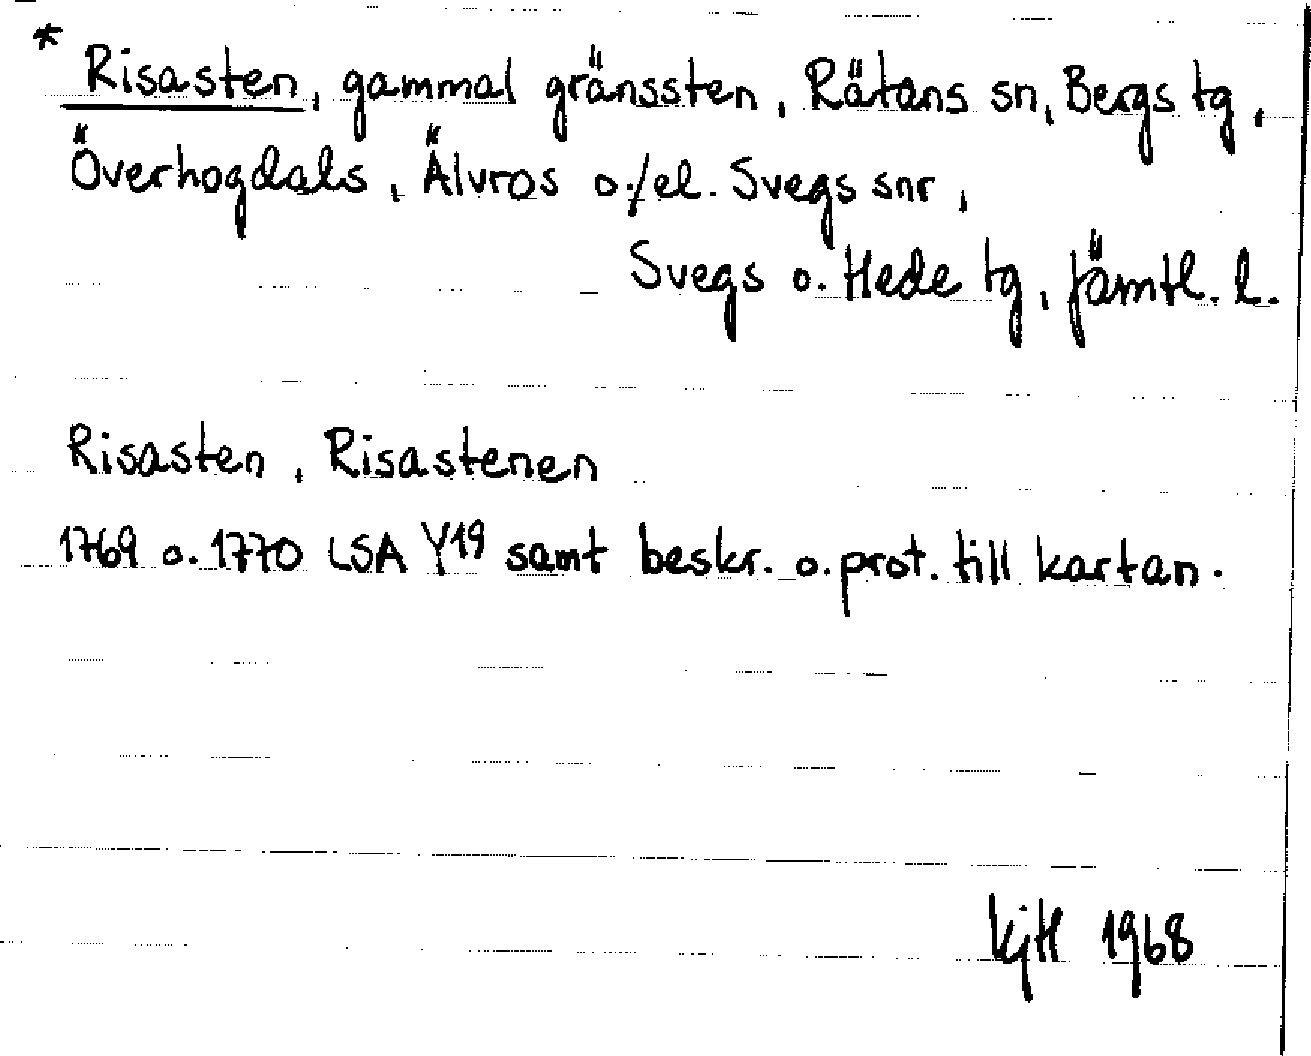 * Risasten, gammal gränssten, Rätans sn, Bergs tg,
Överhogdals, Älvros o./el. Svegs snr,
Svegs o. Hede tg, Jämtl. l.
Risasten, Risastenen
1769 o. 1770 LSA Y19 samt beskr. o. prot. till kartan.
KjH 1968